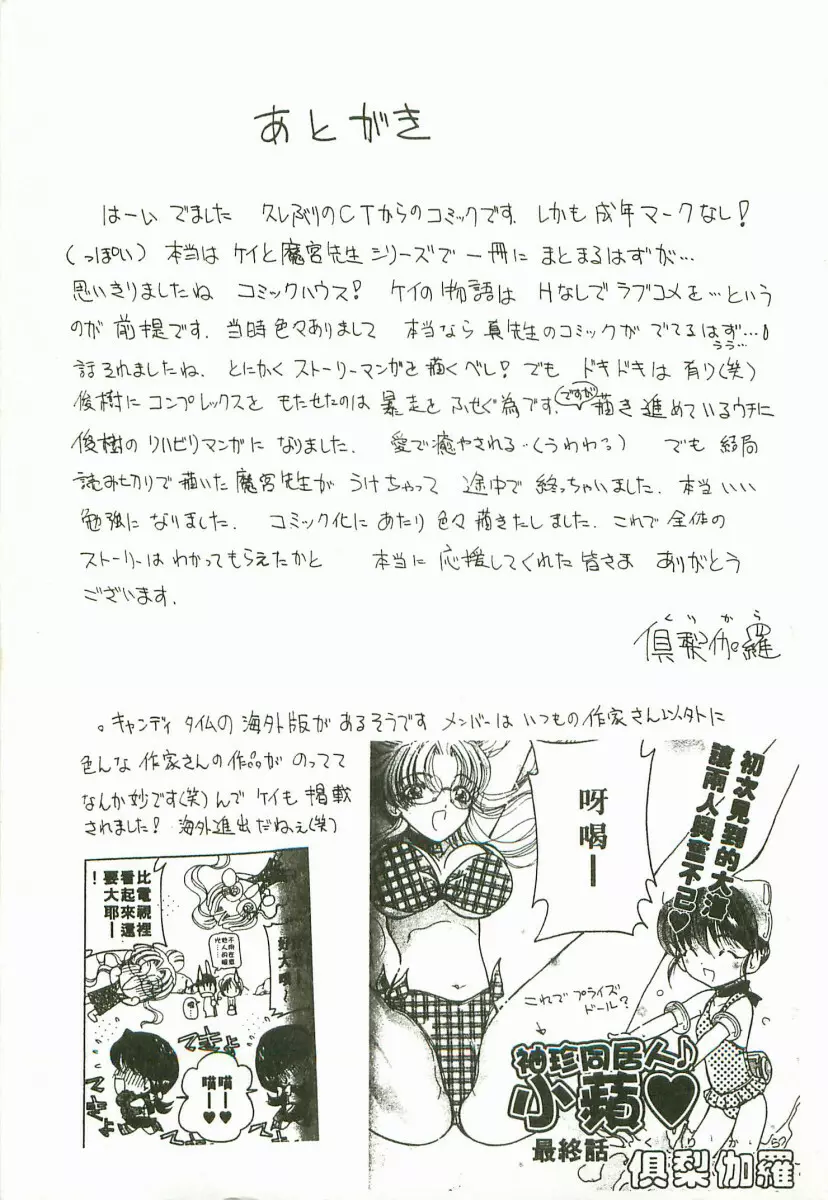 あとがき
はーい でました 久しぶりのCTからのコミックです. しかも成年マークなし!
(っぽい) 本当は ケイと魔宮先生シリーズで一冊に まとまるはずが…
思いきりましたね コミックハウス! ケイの物語は Hなしでラブコメを…という
のが 前提です. 当時色々ありまして 本当なら 真先生のコミックが でてるはず…
うう…
話それましたね. とにかく ストーリーマンガを描くべし! でも ドキドキは 有り(笑)
俊樹に コンプレックスを もたせたのは 暴走を ふせぐ為です. ですが 描き進めているウチに
俊樹の リハビリマンガに なりました. 愛で癒やされる…(うわわっ) でも 結局
読み切りで描いた 魔宮先生が うけちゃって 途中で 終っちゃいました. 本当いい
勉強に なりました. コミック化にあたり 色々 描きたしました. これで 全体の
ストーリーは わかってもらえたかと 本当に 応援してくれた 皆さま ありがとう
ございます.
くりから
倶梨伽羅
。キャンディタイムの 海外版が あるそうです メンバーは いつもの 作家さん以外に
色んな 作家さんの 作品が のってて
なんか妙です(笑) んで ケイも 掲載
されました! 海外進出だねぇ(笑)
初次見到的大海
讓兩人興奮不已♥
呀喝ー
比電視裡
看起來還
要大耶ー
!
好大喔ー
不用在意
他人的眼
光……
てきょ
てきょ
てきょ
喵ー♥
喵ー♥
これで プライズ
ドール?
袖珍同居人♪
小蘋♥
最終話
くりから
倶梨伽羅